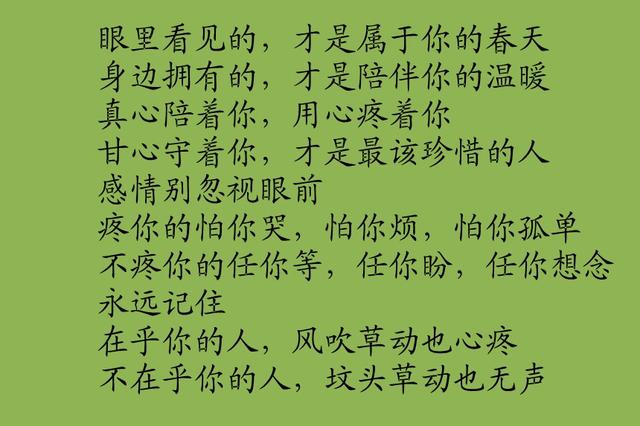 眼里看见的，才是属于你的春天
身边拥有的，才是陪伴你的温暖
真心陪着你，用心疼着你
甘心守着你，才是最该珍惜的人
感情别忽视眼前
疼你的怕你哭，怕你烦，怕你孤单
不疼你的任你等，任你盼，任你想念
永远记住
在乎你的人，风吹草动也心疼
不在乎你的人，坟头草动也无声